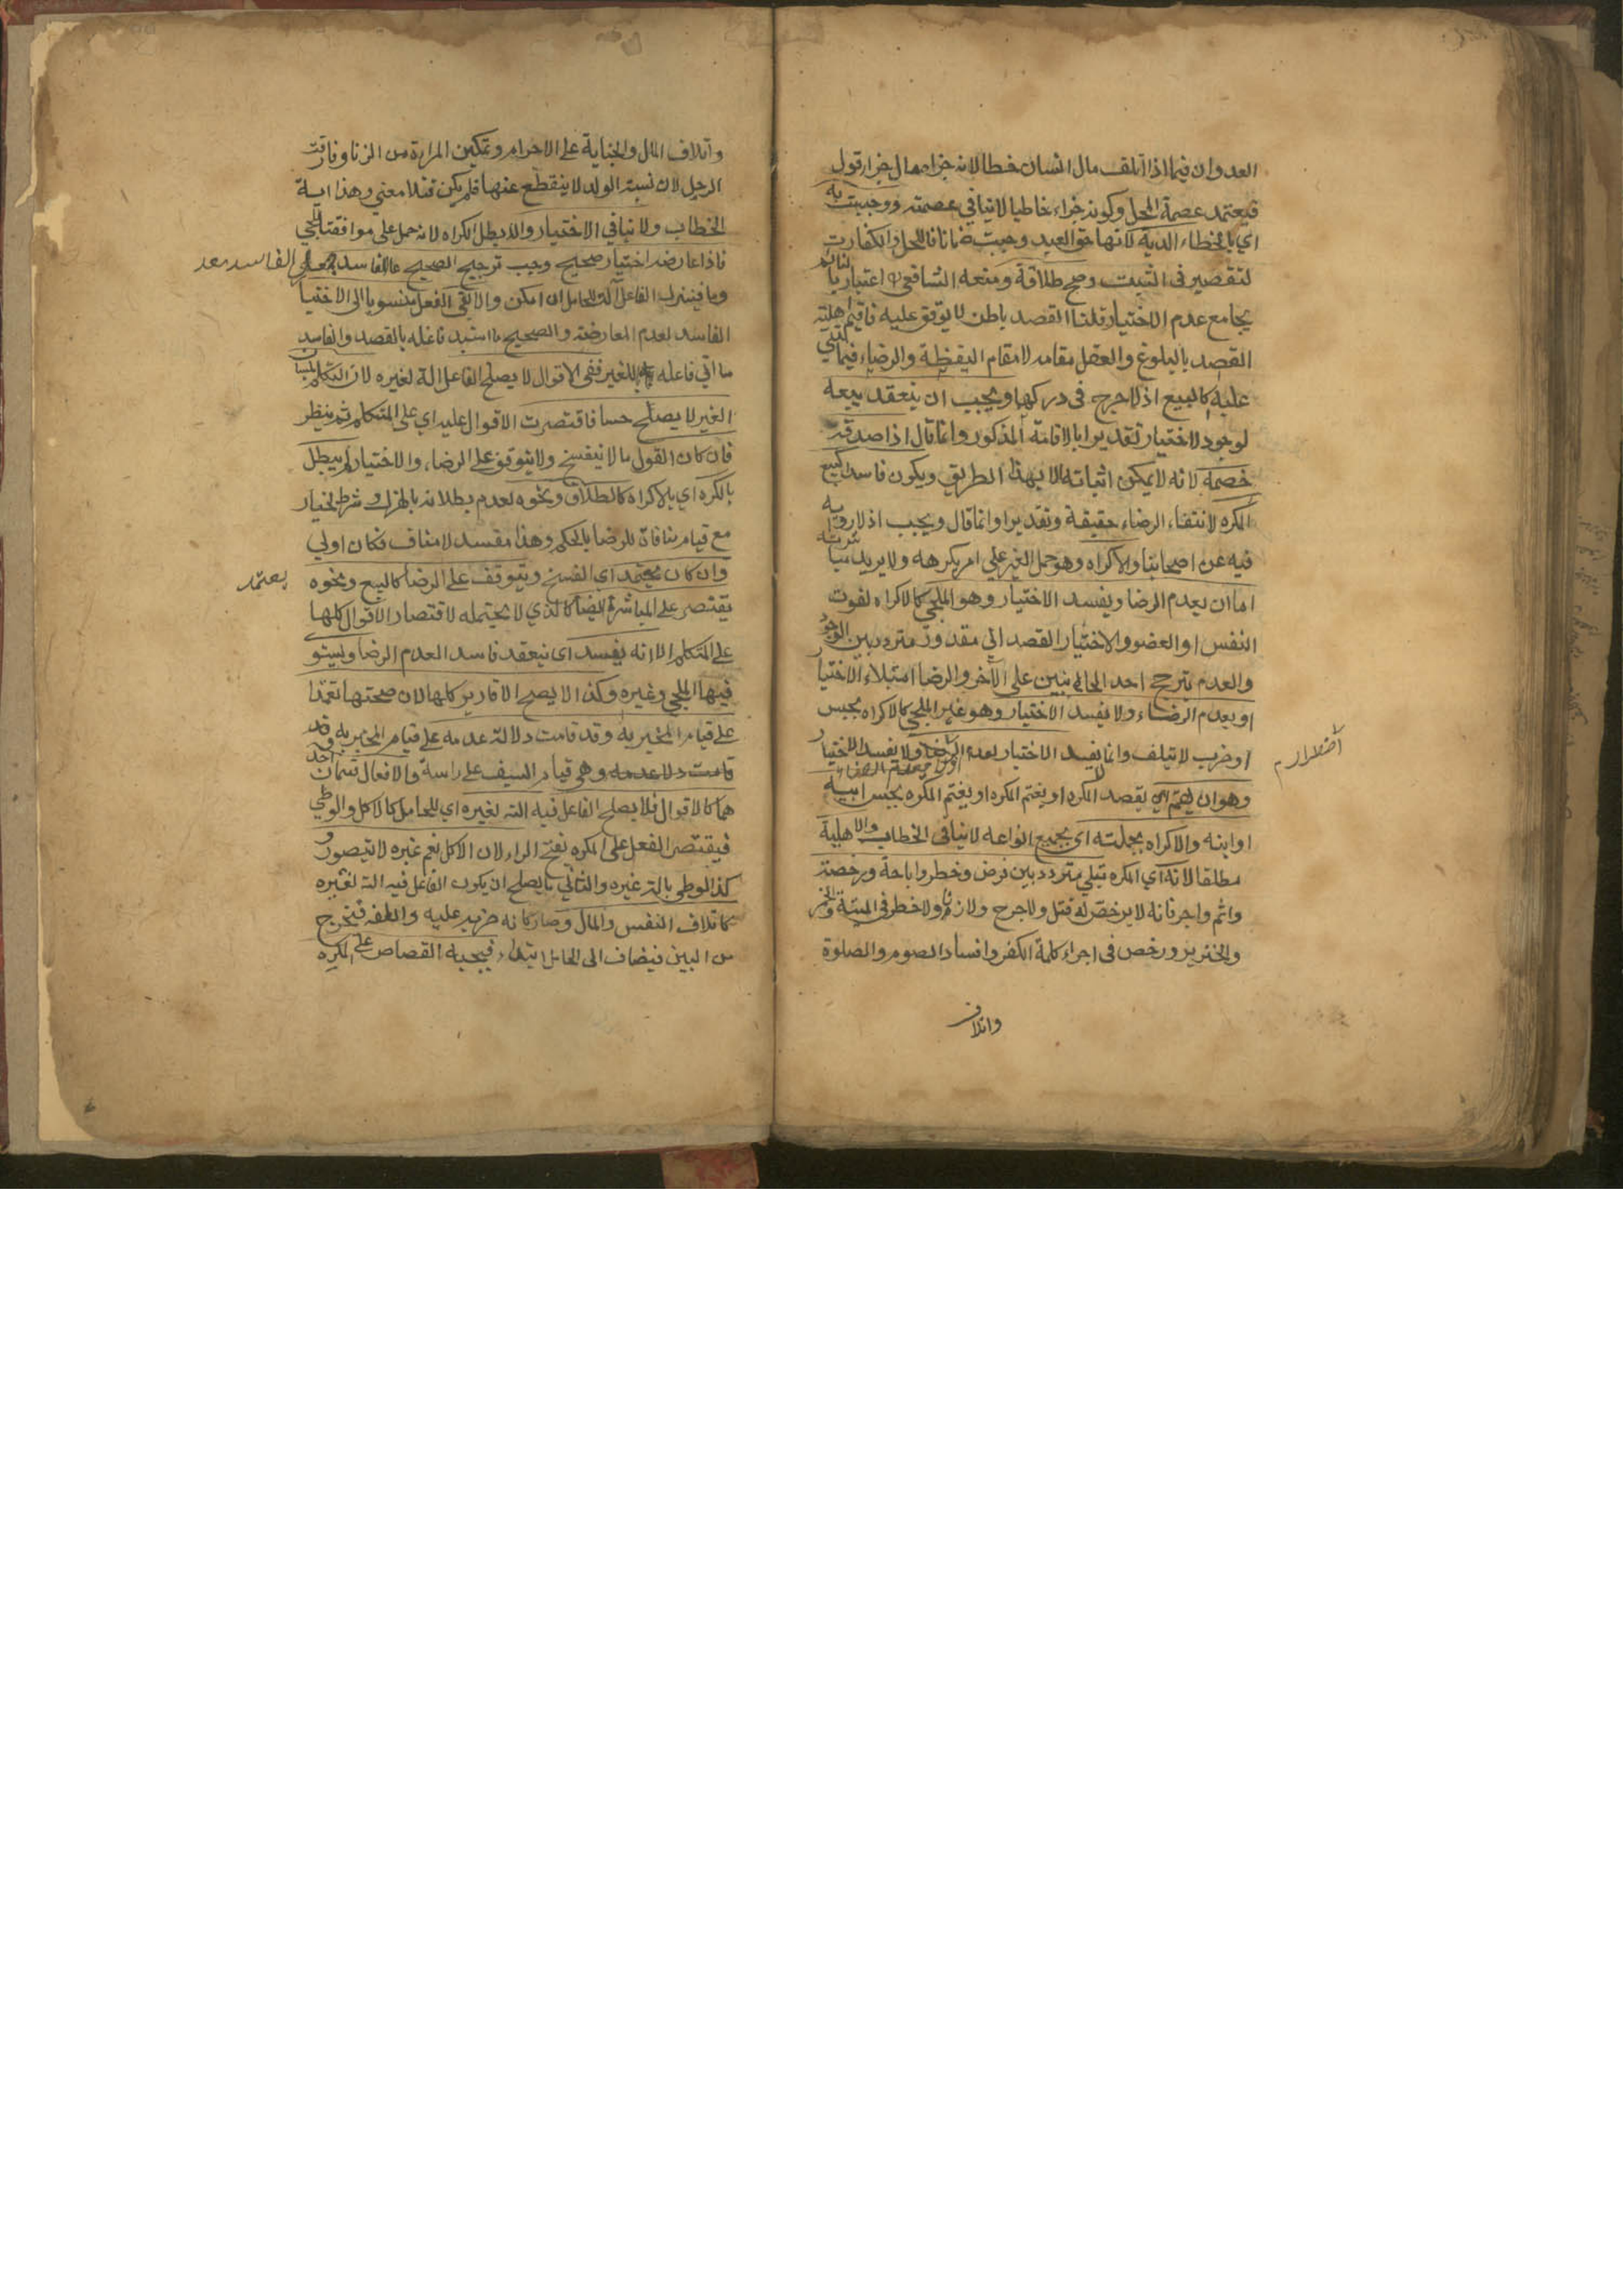 العدوان فيما اذا اتلف مال انسان خطا لانه جزاء مال لا جزاء قول
فيعتمد عصمة المحل وكونه جزاء خاطيا لا ينافى عصمته ووجبت به
اي بالخطاء الدية لانها حق العبد وجبت ضمانا للمحل والكفارت
لتقصير فى التثبت وصح طلاقة ومنعه الشافعى اعتبارا بالنائم
بجامع عدم الاختيار قلنا القصد باطن لا يوقف عليه فاقيم اهلية
القصد بالبلوغ والعقل مقامه لا مقام اليقظة والرضاء فيما
عليه كالبيع اذ لا حرج فى دركها ويجب ان ينعقد بيعه
لوجود الاختيار تقديرا بالاقامة المذكور وانما قال اذا صدقه
خصمه لانه لا يمكن اثباته الا بهذا الطريق ويكون فاسدا كبيع
المكره لانتفاء الرضاء حقيقة وتقديرا وانما قال ويجب اذ لا رواية
فيه عن اصحابنا والاكراه وهو حمل الغير على امر يكرهه ولا يريد مباشرته
اما ان يعدم الرضا ويفسد الاختيار وهو الملجي كالاكراه لفوت
النفس او العضو والاختيار القصد الى مقدور متردد بين الوجود
والعدم بترجح احد الجانبين على الآخر والرضا امتلاء الاختيار
او يعدم الرضاء ولا يفسد الاختيار وهو غير الملجي كالاكراه بحبس
او ضرب لا يتلف وانما يفسد الاختيار لعدم الرضا ولا يفسد الاختيار
اضطرار
وهو ان يهتم اي يقصد المكره او يغتم المكره او يغتم المكره بحبس ابيه
او ابنه والاكراه بجملته اى بجميع انواعه لا ينافى الخطاب والاهلية
مطلقا لانه اي المكره مبتلي متردد بين فرض وحظر واباحة ورخصة
واثم واجر فانه لا يرخص له قتل ولا جرح ولا زنا ولا حظر فى الميتة والخمر
والخنزير ورخص فى اجراء كلمة الكفر وافساد الصوم والصلوة
واتلاف
واتلاف المال والجناية على الاحرام وتمكين المراة من الزنا وفارقت
الرجل لان نسبة الولد لا ينقطع عنها فلم يكن قتلا معنى وهذا اية
الخطاب ولا ينافي الاختيار والا لبطل الاكراه لانه حمل على موافقة الملجي
فاذا عارضه اختيار صحيح وجب ترجيح الصحيح على الفاسد
الفاسد معد
وما فيتنزل الفاعل آلة للحامل ان امكن والا بقى الفعل منسوبا الى الاختيار
الفاسد لعدم المعارضة والصحيح ما استبد فاعله بالقصد والفاسد
ما اتي فاعله للغير ففى الاقوال لا يصلح الفاعل الة لغيره لان التكلم بلسان
الغير لا يصلح حسا فاقتصرت الاقوال عليه اي على المتكلم ثم ينظر
فان كان القول مما لا ينفسخ ولا يتوقف على الرضاء والاختيار لم يبطل
بالكره اي بالاكراه كالطلاق ونحوه لعدم بطلانه بالهزل وشرط الخيار
مع قيام منافاة للرضا بالحكم وهذا مفسد لا مناف فكان اولي
وان كان يحتمله اي الفسخ ويتوقف على الرضا كالبيع ونحوه
يعتمد
يقتصر على المباشرة ايضا كالذي لا يحتمله لاقتصار الاقوال كلها
على المتكلم الا انه يفسد اى ينعقد فاسدا لعدم الرضا ويستوى
فيها الملجي وغيره وكذا لا يصح الاقارير كلها لان صحتها تعتمد
على قيام المخبر به وقد قامت دلالة عدمه على قيام المخبر به وقد
قامت دلالة عدمه وهى قيام السيف على راسه والافعال قسمان احد
هما كالاقوال فلا يصلح الفاعل فيه الة لغيره اي للحامل كالاكل والوطي
فيقتصر الفعل على المكره بفتح الراء لان الاكل بفم غيره لا يتصور و
كذا الوطي بالة غيره والثاني ما يصلح ان يكون الفاعل فيه الة لغيره
كاتلاف النفس والمال وصار كانه ضربه عليه واتلفه فيخرج
من البين فيضاف الى الحامل ابتداء فيجب القصاص على المكره